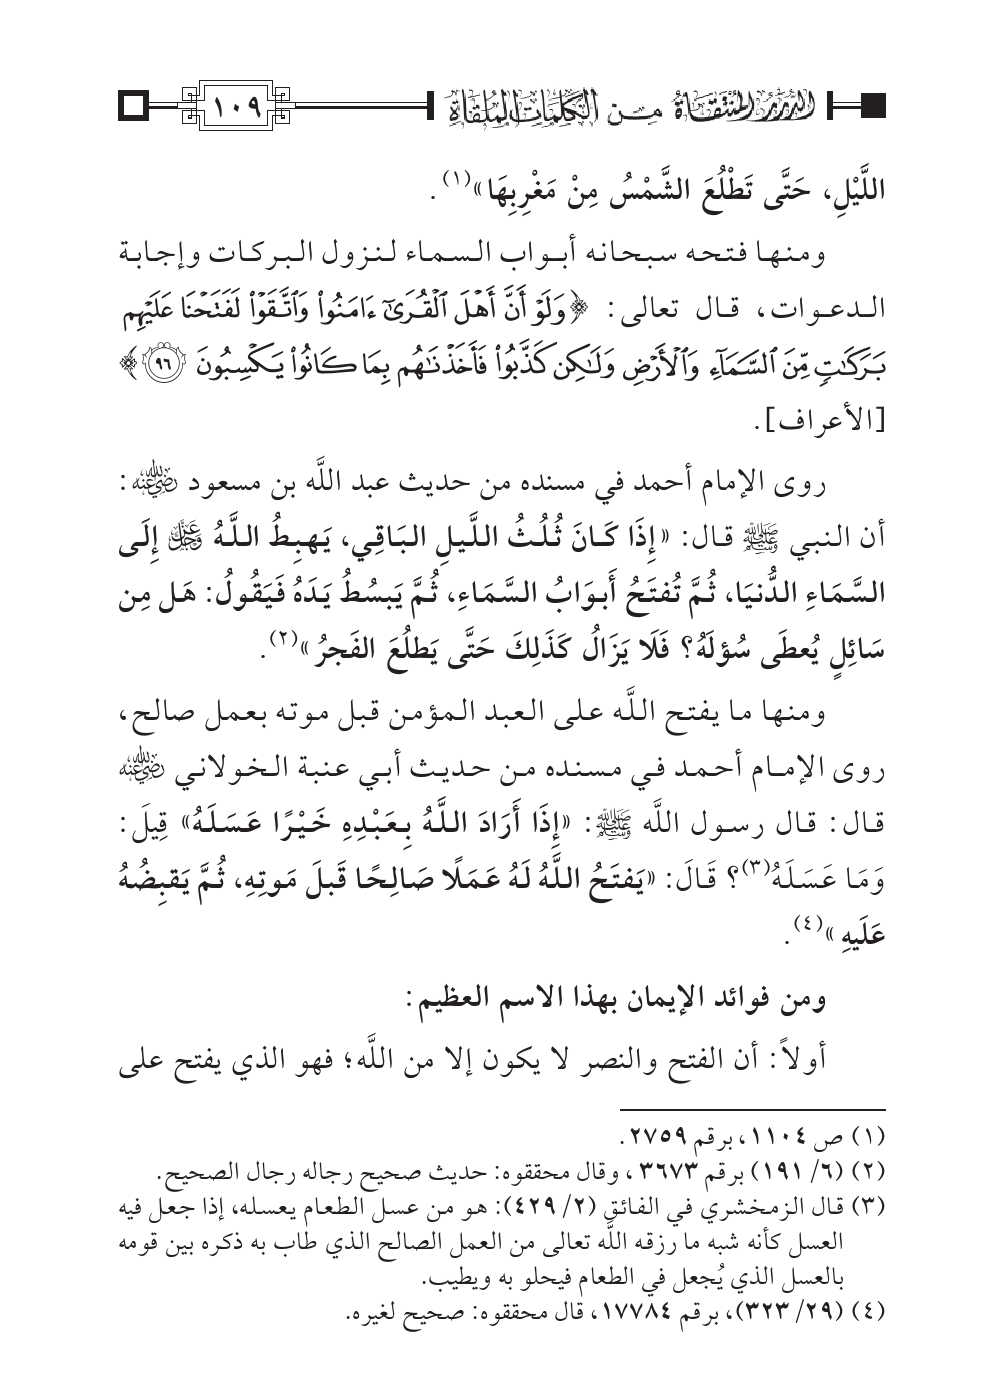 الدرر المنتقاة من الكلمات الملقاة
١٠٩
اللَّيْلِ، حَتَّى تَطْلُعَ الشَّمْسُ مِنْ مَغْرِبِهَا»(١).
ومنها فتحه سبحانه أبواب السماء لنزول البركات وإجابة
الدعوات، قال تعالى: ﴿وَلَوْ أَنَّ أَهْلَ ٱلْقُرَىٰٓ ءَامَنُواْ وَٱتَّقَوْاْ لَفَتَحْنَا عَلَيْهِم
بَرَكَٰتٍ مِّنَ ٱلسَّمَآءِ وَٱلْأَرْضِ وَلَٰكِن كَذَّبُواْ فَأَخَذْنَٰهُم بِمَا كَانُواْ يَكْسِبُونَ ٩٦﴾
[الأعراف].
روى الإمام أحمد في مسنده من حديث عبد اللَّه بن مسعود رضي الله عنه:
أن النبي ﷺ قال: «إِذَا كَانَ ثُلُثُ اللَّيلِ البَاقِي، يَهبِطُ اللَّهُ عَزَّ وَجَلَّ إِلَى
السَّمَاءِ الدُّنيَا، ثُمَّ تُفتَحُ أَبوَابُ السَّمَاءِ، ثُمَّ يَبسُطُ يَدَهُ فَيَقُولُ: هَل مِن
سَائِلٍ يُعطَى سُؤلَهُ؟ فَلَا يَزَالُ كَذَلِكَ حَتَّى يَطلُعَ الفَجرُ»(٢).
ومنها ما يفتح اللَّه على العبد المؤمن قبل موته بعمل صالح،
روى الإمام أحمد في مسنده من حديث أبي عنبة الخولاني رضي الله عنه
قال: قال رسول اللَّه ﷺ: «إِذَا أَرَادَ اللَّهُ بِعَبْدِهِ خَيْرًا عَسَلَهُ» قِيلَ:
وَمَا عَسَلَهُ(٣)؟ قَالَ: «يَفتَحُ اللَّهُ لَهُ عَمَلًا صَالِحًا قَبلَ مَوتِهِ، ثُمَّ يَقبِضُهُ
عَلَيهِ»(٤).
ومن فوائد الإيمان بهذا الاسم العظيم:
أولاً: أن الفتح والنصر لا يكون إلا من اللَّه؛ فهو الذي يفتح على
(١) ص ١١٠٤، برقم ٢٧٥٩.
(٢) (٦/ ١٩١) برقم ٣٦٧٣، وقال محققوه: حديث صحيح رجاله رجال الصحيح.
(٣) قال الزمخشري في الفائق (٢/ ٤٢٩): هو من عسل الطعام يعسله، إذا جعل فيه
العسل كأنه شبه ما رزقه اللَّه تعالى من العمل الصالح الذي طاب به ذكره بين قومه
بالعسل الذي يُجعل في الطعام فيحلو به ويطيب.
(٤) (٢٩/ ٣٢٣)، برقم ١٧٧٨٤، قال محققوه: صحيح لغيره.